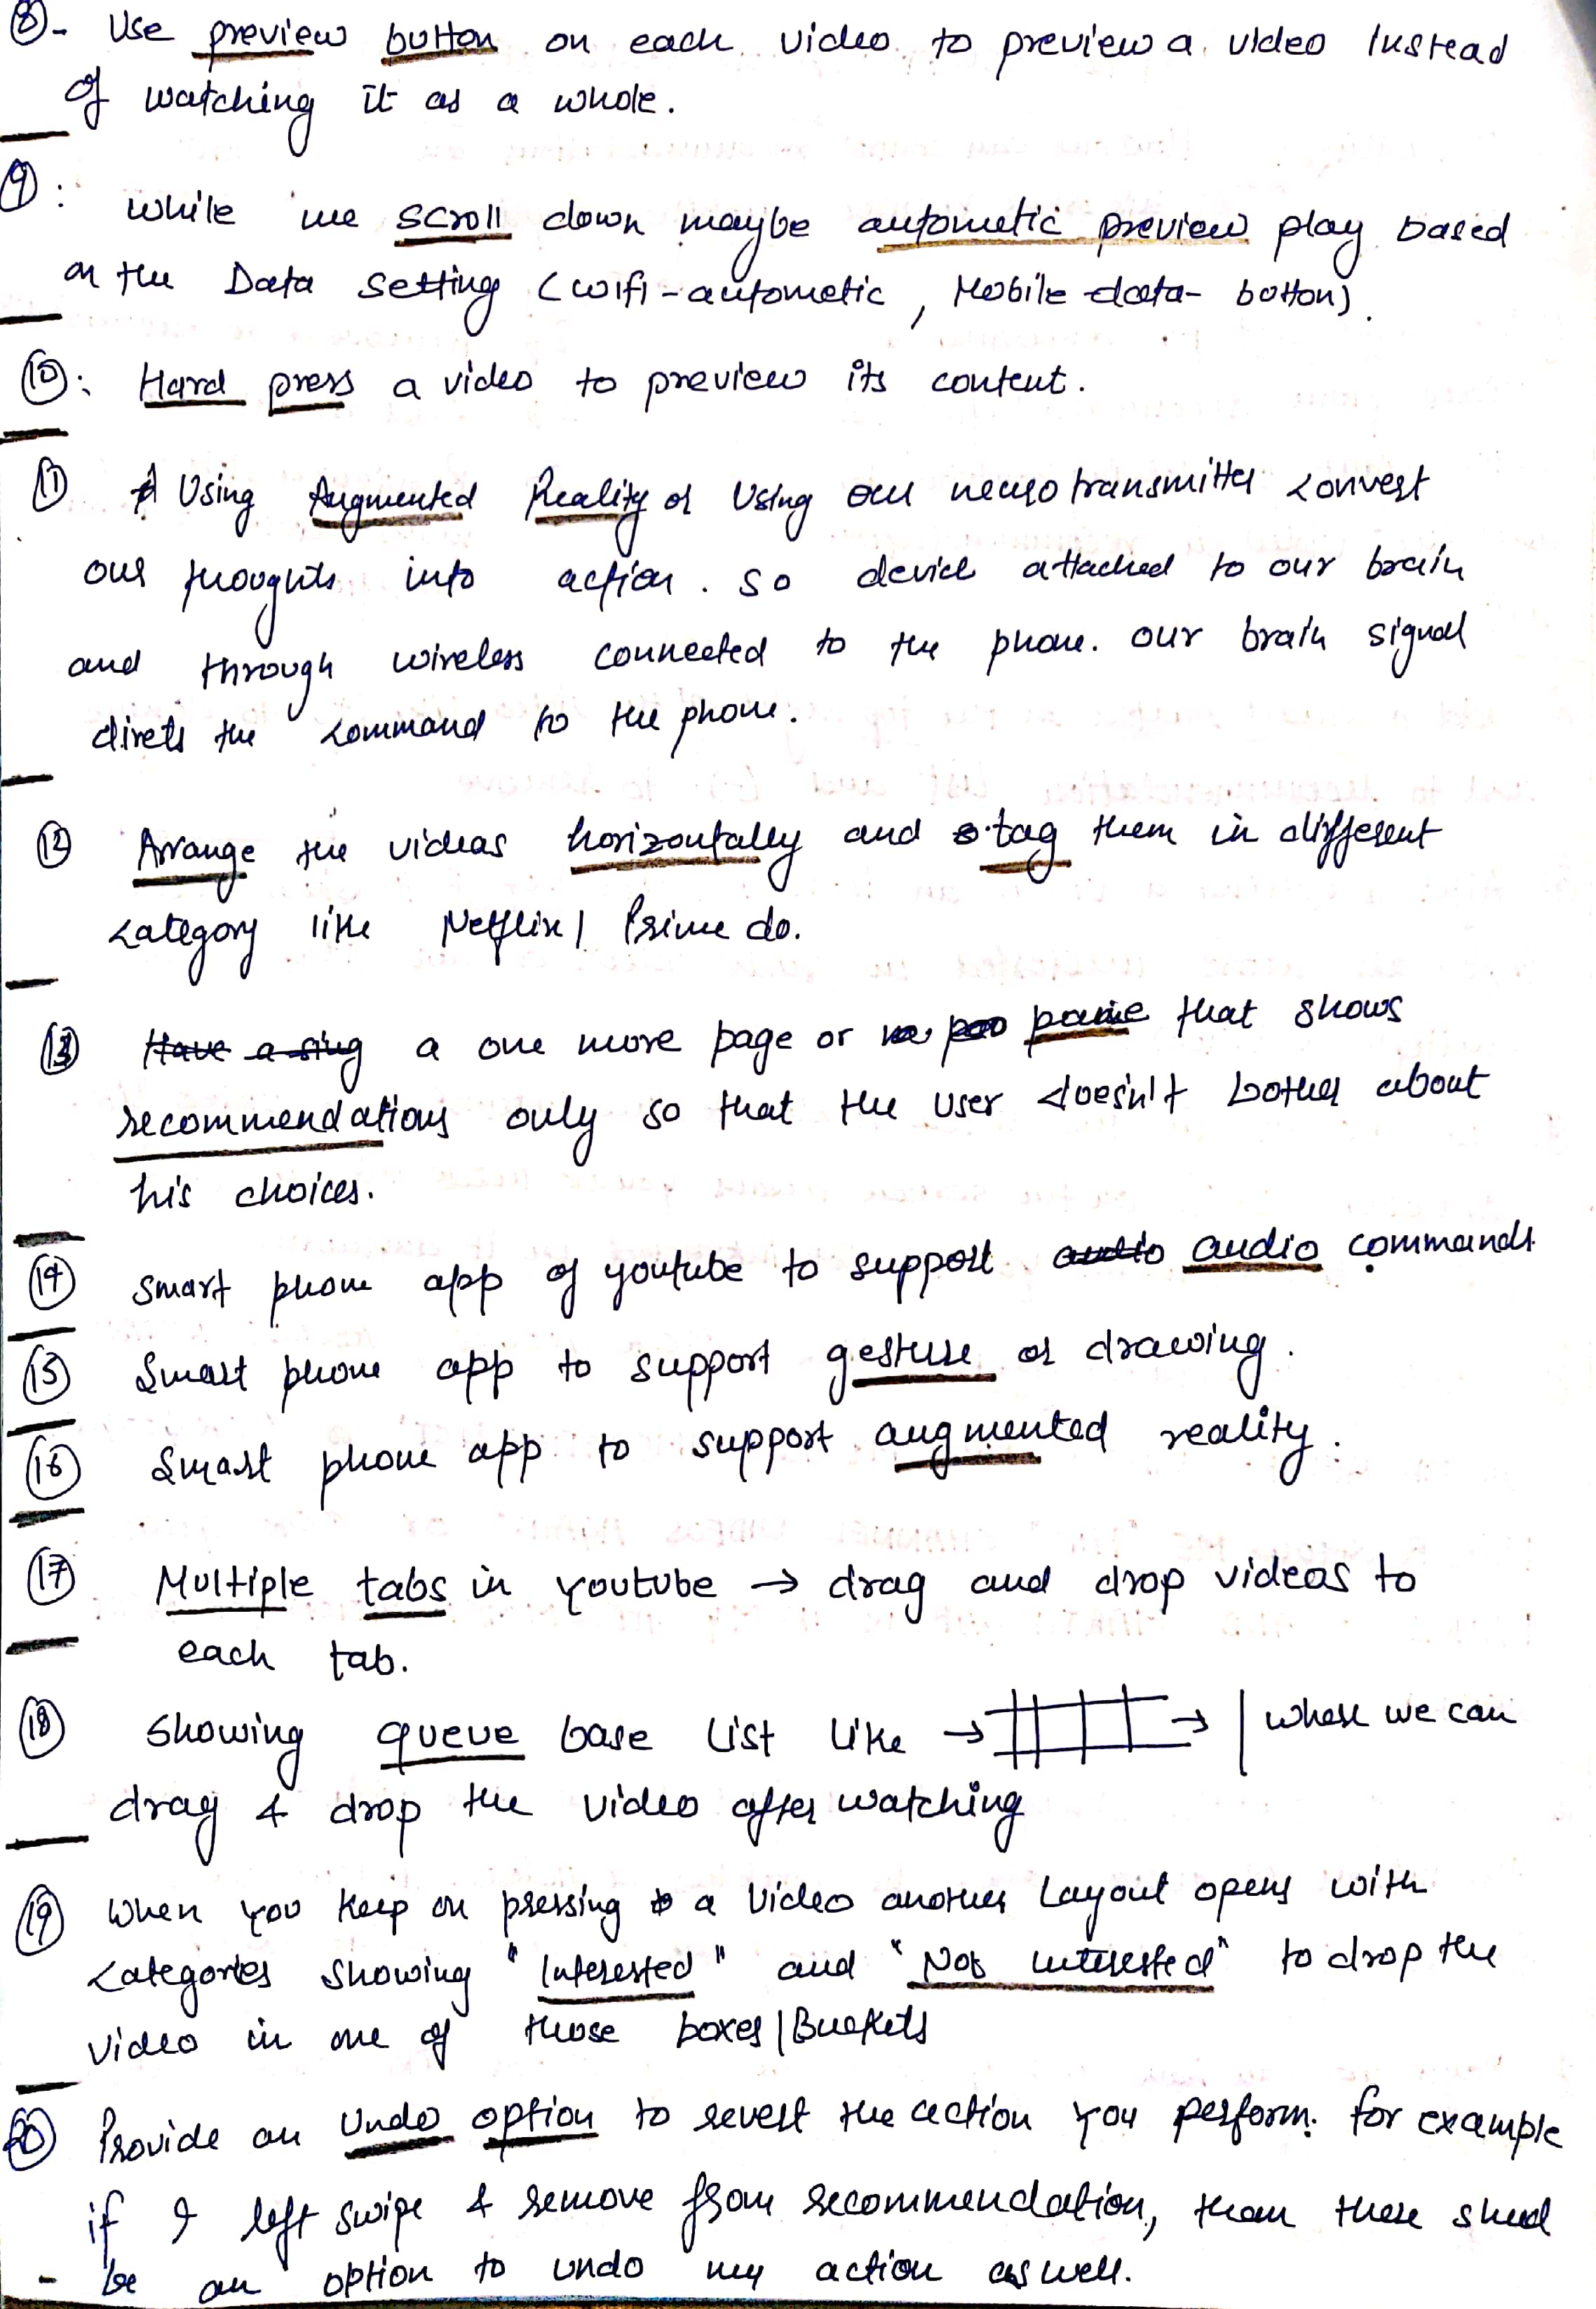 ⑧- Use preview button on each video to preview a video Instead
of watching it as a whole.
⑨: while we scroll down maybe autometic preview play based
on the Data setting (wifi-autometic, Mobile data- button).
⑩: Hard press a video to preview its content.
⑪ Using Augmented Reality or Using our neurotransmitter convert
our thoughts into action. So device attached to our brain
and through wireless connected to the phone. our brain signal
direts the command to the phone.
⑫ Arrange the videos horizontally and tag them in different
category like Netflix/ Prime do.
⑬ Have a sing a one more page or pane that shows
recommendations only so that the user doesn't bother about
his choices.
⑭ Smart phone app of youtube to support audio audio commands.
⑮ Smart phone app to support gesture or drawing.
⑯ Smart phone app to support augmented reality.
⑰ Multiple tabs in youtube → drag and drop videos to
each tab.
⑱ Showing queue base list like → → | where we can
drag & drop the video after watching
⑲ When you keep on pressing a video another Layout opens with
categories showing "Interested" and "Not interested" to drop the
video in one of those boxes/Buckets
⑳ Provide an Undo option to revert the action you perform. for example
if I left swipe & remove from recommendation, than there shud
be an option to undo my action as well.